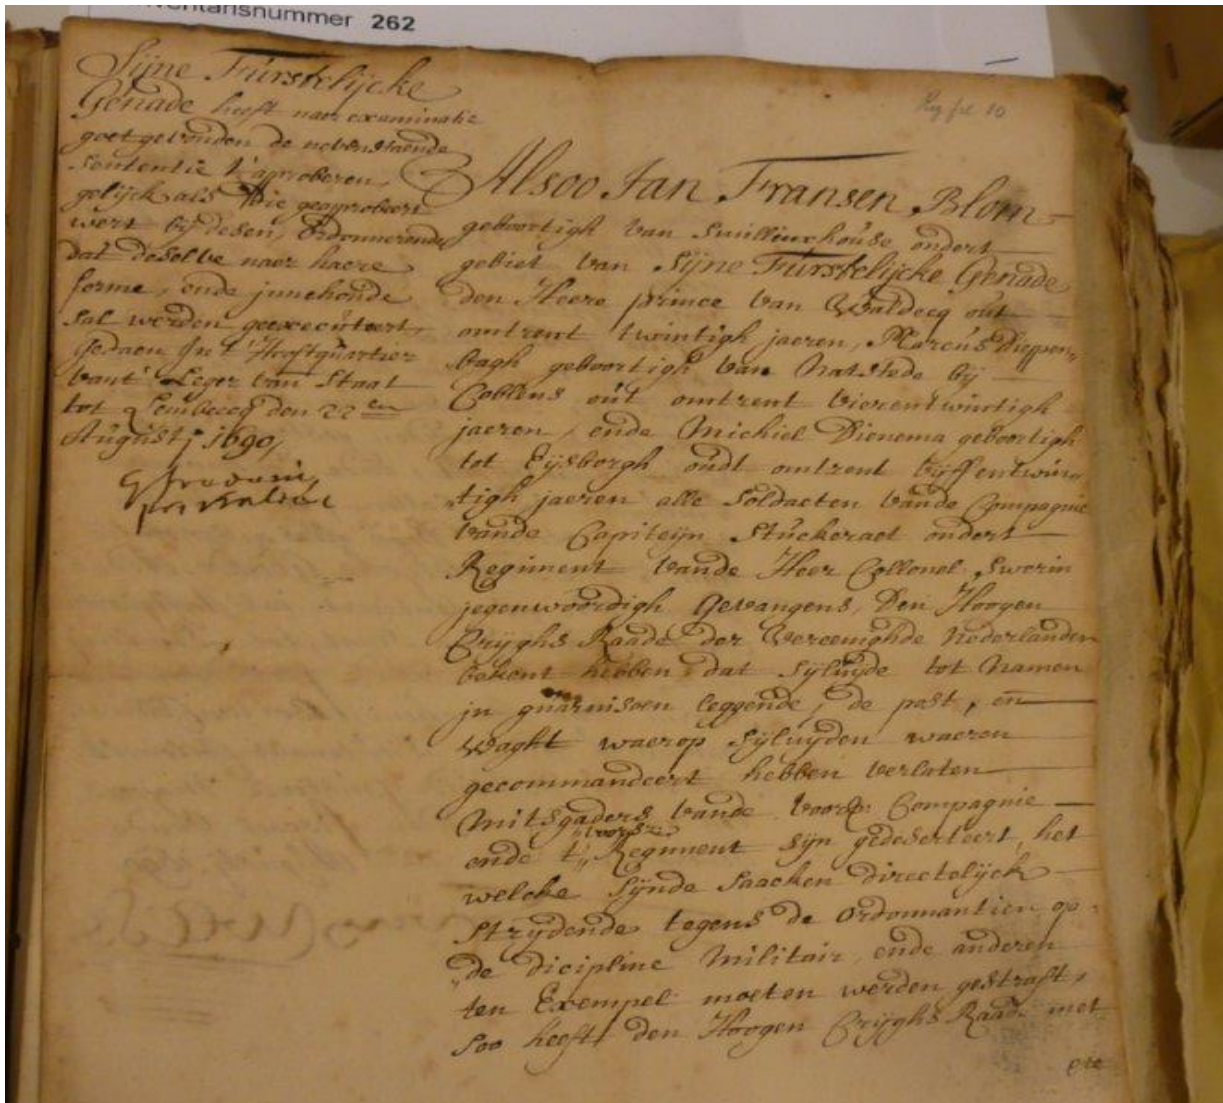 inventarisnummer 262
fol 10
Sijne Furstelijcke
Genade heeft naer examinatie
goet gevonden de nevenstaende
Sententie t'approberen,
gelijck als die geapprobeert
wert bij desen, Ordonnerende
dat deselve naer haere
forme, ende innehoude
sal werden geexecuteert,
Gedaen in't Hooftquartier
vant Leger van Staat
tot Lembecq den 22en
Augusti 1690,
Alsoo Jan Fransen Blom
geboortigh van ondert
gebiet van Sijne Furstelijcke Genade
den Heere prince van Waldecq out
omtrent twintigh jaeren, Marcus Diepen„
bagh geboortigh van Natstede bij
Coblens out omtrent vierentwintigh
jaeren, ende Michiel Dienema geboortigh
tot Eijsborgh oudt omtrent vijffentwin„
„tigh jaeren alle Soldaeten vande Compagnie
vande Capiteijn Stuckeraet ondert
Regiment vande Heer Collonel Swerin
jegenwoordigh Gevangens, Den Hoogen
Crijghs Raade der Vereenighde Nederlanden
bekent hebben dat sijluijde tot Namen
in guarnisoen leggende, de post, en
Waght waerop sijluijden waeren
gecommandeert hebben verlaten
Mitsgaders vande voorsz: Compagnie
voorsz
ende t„ Regiment sijn gedeserteert, het
welcke sijnde saacken directelijck
strijdende tegens de Ordonnantien op
de dicipline Militair, ende anderen
ten Exempel moeten werden gestraft,
soo heeft den Hoogen Crijghs Raade met